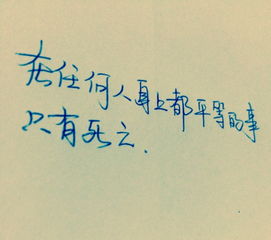 在任何人身上都平等的事
只有死亡.